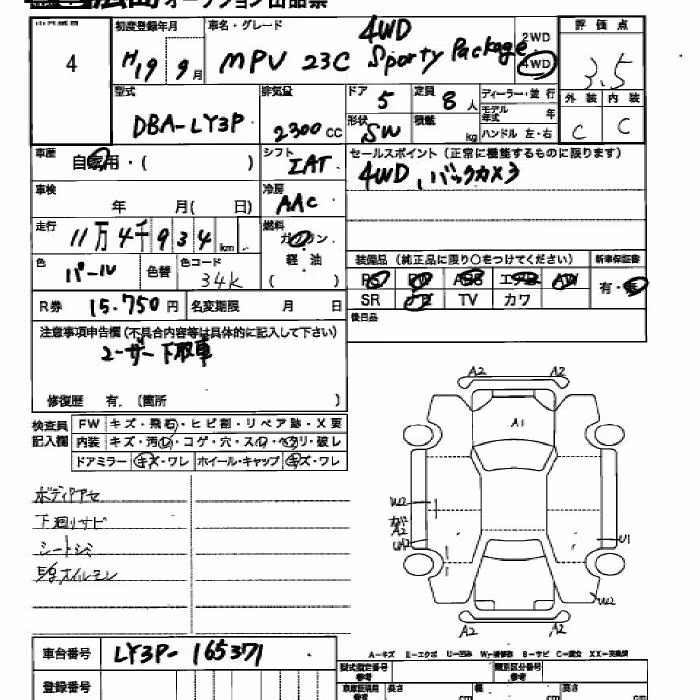 オークション出品票
4
初度登録年月 車名・グレード 4WD 2WD 評価点
H19 9月 MPV 23C Sporty Package 4WD 3.5
型式 排気量 ドア 5 定員 8人 ディーラー・並行 外装 内装
DBA-LY3P 2300cc 形状 SW 積載 kg モデル年式 年 C C
ハンドル 左・右
車歴 自家用・( ) シフト IAT セールスポイント (正常に機能するものに限ります)
車検 年 月( 日) 冷房 AAC 4WD、バックカメラ
走行 11万4千934km 燃料 ガソリン
色 パール 色替 色コード 34K 軽油 ( ) 装備品 (純正品に限り○をつけてください) 新車保証書
PS PW ABS エアB AW 有・無
R券 15.750円 名変期限 月 日 SR ナビ TV カワ
後日品
注意事項申告欄(不具合内容等は具体的に記入して下さい)
ユーザー下取車
修復歴 有.(箇所 )
検査員 FW キズ・飛石・ヒビ割・リペア跡・X要
記入欄 内装 キズ・汚レ・コゲ・穴・スレ・ヘタリ・破レ
ドアミラー キズ・ワレ ホイール・キャップ キズ・ワレ
A2 A2
A1
ボディアセ
W2
下廻りサビ
A2
シートシミ
U1
W2
A2 A2
車台番号 LY3P-165371
A-キズ E-エクボ U-凹み W-補修跡 S-サビ C-腐食 XX-交換済
登録番号 型式指定番号 類別区分番号
長さ cm 幅 cm 高さ cm